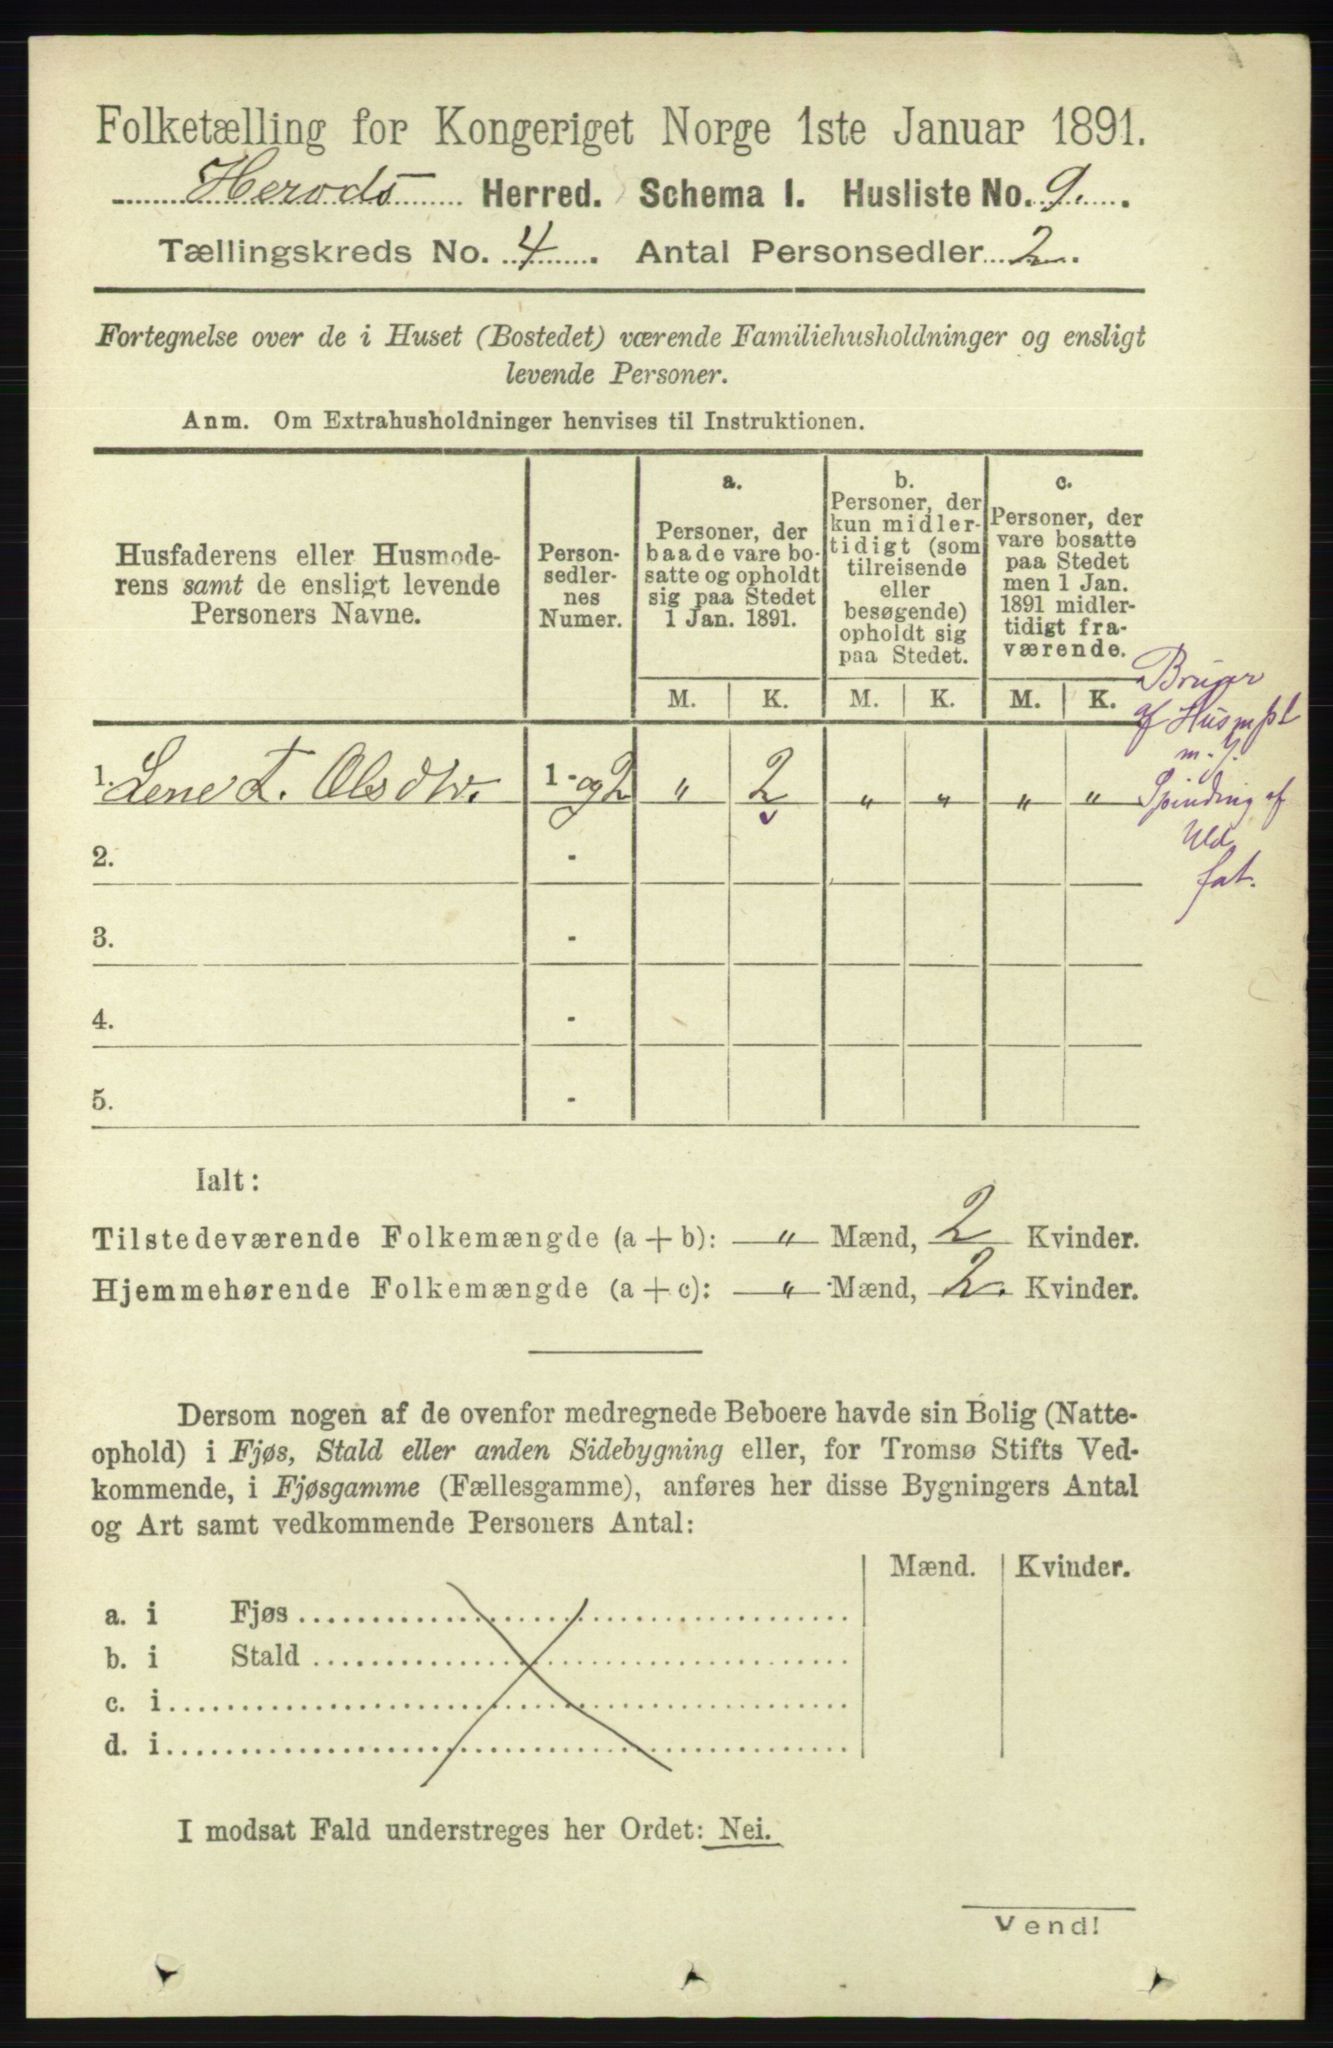 Folketælling for Kongeriget Norge 1ste Januar 1891.
Herods Herred. Schema I. Husliste No. 9.
Tællingskreds No. 4. Antal Personsedler 2.
Fortegnelse over de i Huset (Bostedet) værende Familiehusholdninger og ensligt
levende Personer.
Anm. Om Extrahusholdninger henvises til Instruktionen.
Husfaderens eller Husmode-
rens samt de ensligt levende
Personers Navne.
Person-
sedler-
nes
Numer.
a.
Personer, der
baade vare bo-
satte og opholdt
sig paa Stedet
1 Jan. 1891.
b.
Personer, der
kun midler-
tidigt (som
tilreisende
eller
besøgende)
opholdt sig
paa Stedet.
c.
Personer, der
vare bosatte
paa Stedet
men 1 Jan.
1891 midler-
tidigt fra-
værende.
M. K. M. K. M. K.
Bruger
af Husmpl
m. J.
Spinding af
Uld
fat.
1. Lene T. Olsdtr. 1 - og 2 " 2 " " " "
2. -
3. -
4. -
5. -
Ialt:
Tilstedeværende Folkemængde (a + b): " Mænd, 2 Kvinder.
Hjemmehørende Folkemængde (a + c): " Mænd, 2. Kvinder.
Dersom nogen af de ovenfor medregnede Beboere havde sin Bolig (Natte-
ophold) i Fjøs, Stald eller anden Sidebygning eller, for Tromsø Stifts Ved-
kommende, i Fjøsgamme (Fællesgamme), anføres her disse Bygningers Antal
og Art samt vedkommende Personers Antal:
Mænd. Kvinder.
a. i Fjøs
b. i Stald
c. i
d. i
I modsat Fald understreges her Ordet: Nei.
Vend!